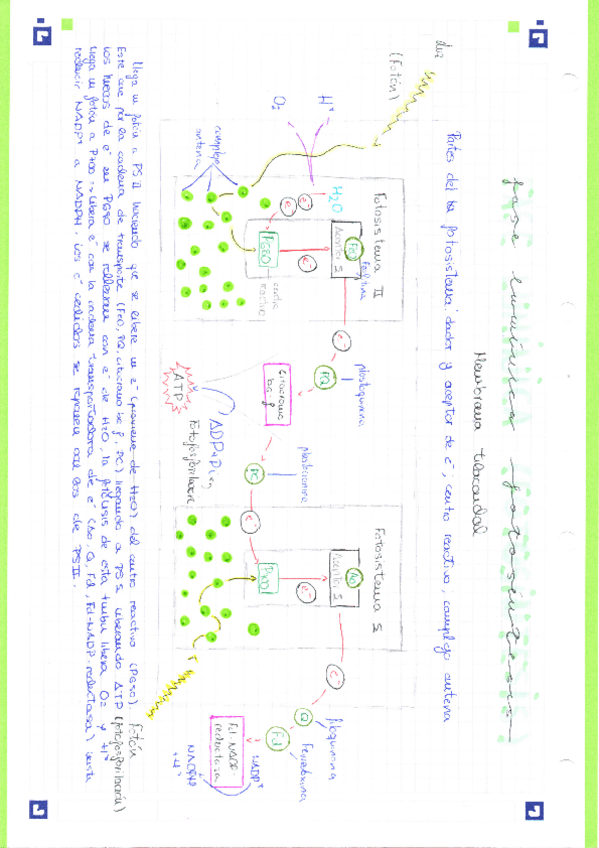 fase lumínica fotosíntesis
Membrana tilacoidal
Partes del la fotosistema: dador y aceptor de e⁻, centro reactivo, complejo antena
luz
(Fotón)
Fotosistema II
H⁺
O₂
H₂O
e⁻
e⁻
Aceptor
e⁻
P680
centro reactivo
complejo antena
e⁻
PQ
plastoquinona
Citocromo
ADP+Pi
ATP
Fotofosforilación
PC
plastocianina
e⁻
Fotosistema I
Aceptor
e⁻
P700
Fotón
e⁻
Q
filoquinona
Fd
Ferredoxina
Fd-NADP-
reductasa
NADP⁺
NADPH
+H⁺
llega un fotón a PSII haciendo que se libere un e⁻ (proviene de H₂O) del centro reactivo (P680).
Este cae por la cadena de transporte (FeO, PQ, citocromo b6 f, PC) llegando a PSI, liberando ATP (fotofosforilación)
los huecos de e⁻ en P680 se rellenan con e⁻ de H₂O, la fotólisis de esta libera O₂ y H⁺
llega un fotón a P700 → libera e⁻ con la cadena transportadora de e⁻ Q, Fd, Fd-NADP-reductasa) hasta
reducir NADP⁺ a NADPH. los e⁻ cedidos se reponen con los de PSII.